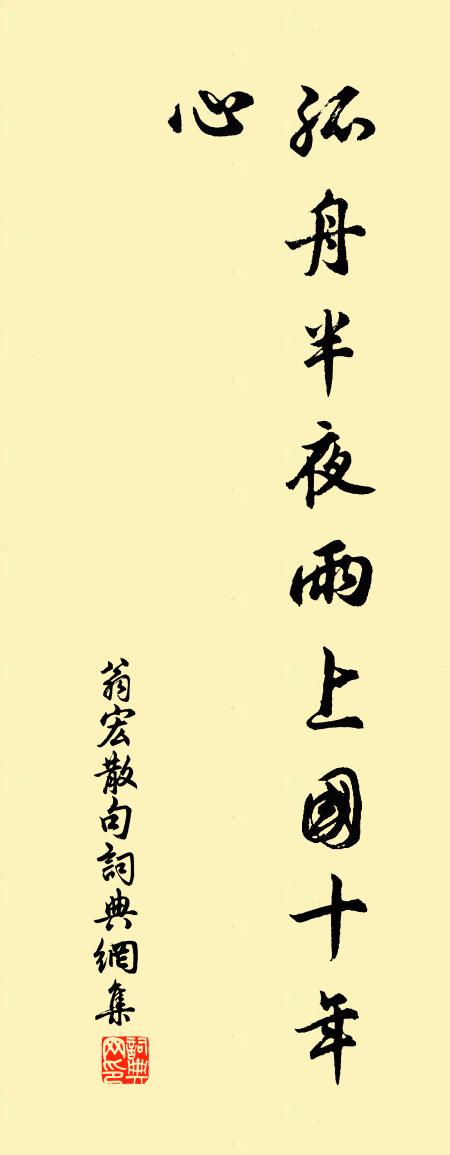 孤舟半夜雨上國十年
心
翁宏散句詞典網集
詞典网印